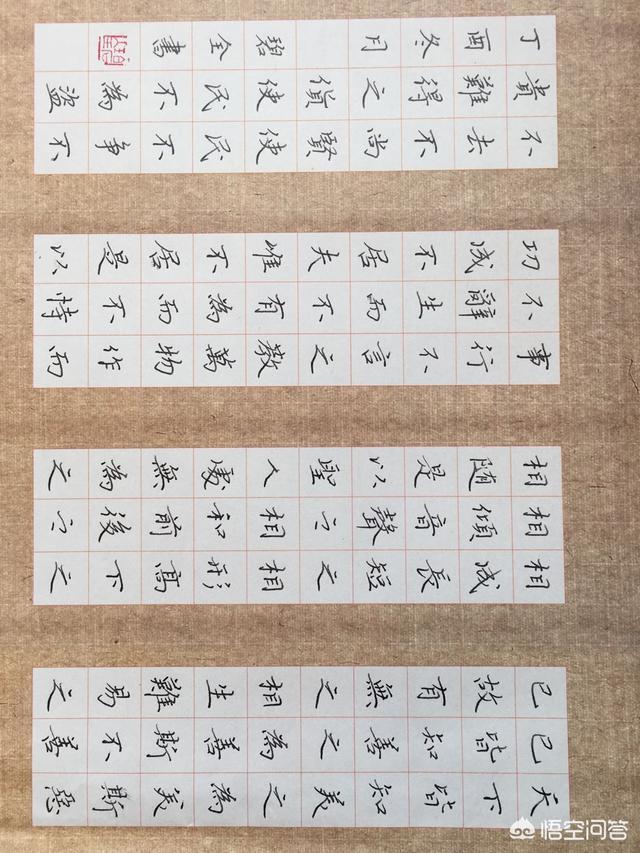 天下皆知美之為美斯惡
已皆知善之為善斯不善
已故有無之相生難易之
相成長短之相形高下之
相傾音聲之相和前後之
相隨是以聖人處無為之
事行不言之教萬物作而
不辭生而不有為而不恃
功成不居夫唯不居是以
不去不尚賢使民不爭不
貴難得之貨使民不為盜
丁酉冬月 碧全書
悟空问答